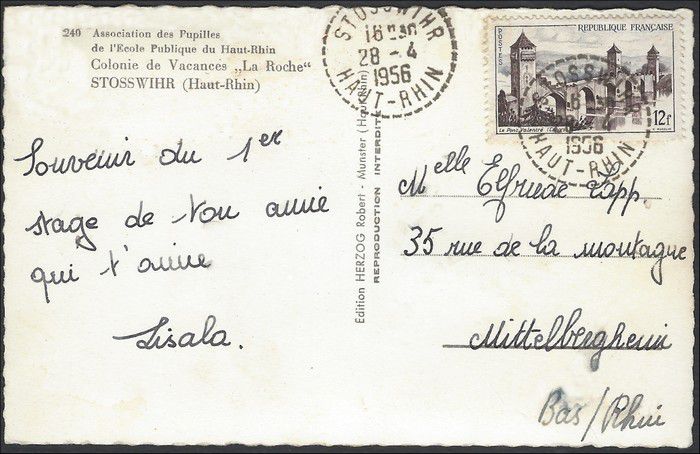 240 Association des Pupilles
de l'Ecole Publique du Haut-Rhin
Colonie de Vacances „La Roche"
STOSSWIHR (Haut-Rhin)
Souvenir du 1er
stage de ton amie
qui t'aime
Lisala.
Edition HERZOG Robert - Munster (Haut-Rhin)
REPRODUCTION INTERDITE
STOSSWIHR
28 - 4
1956
HAUT-RHIN
POSTES
REPUBLIQUE FRANÇAISE
Le Pont Valentré
12f
STOSSWIHR
1956
HAUT-RHIN
Melle Elfriede Rapp.
35 rue de la montagne
Mittelbergheim
Bas/Rhin